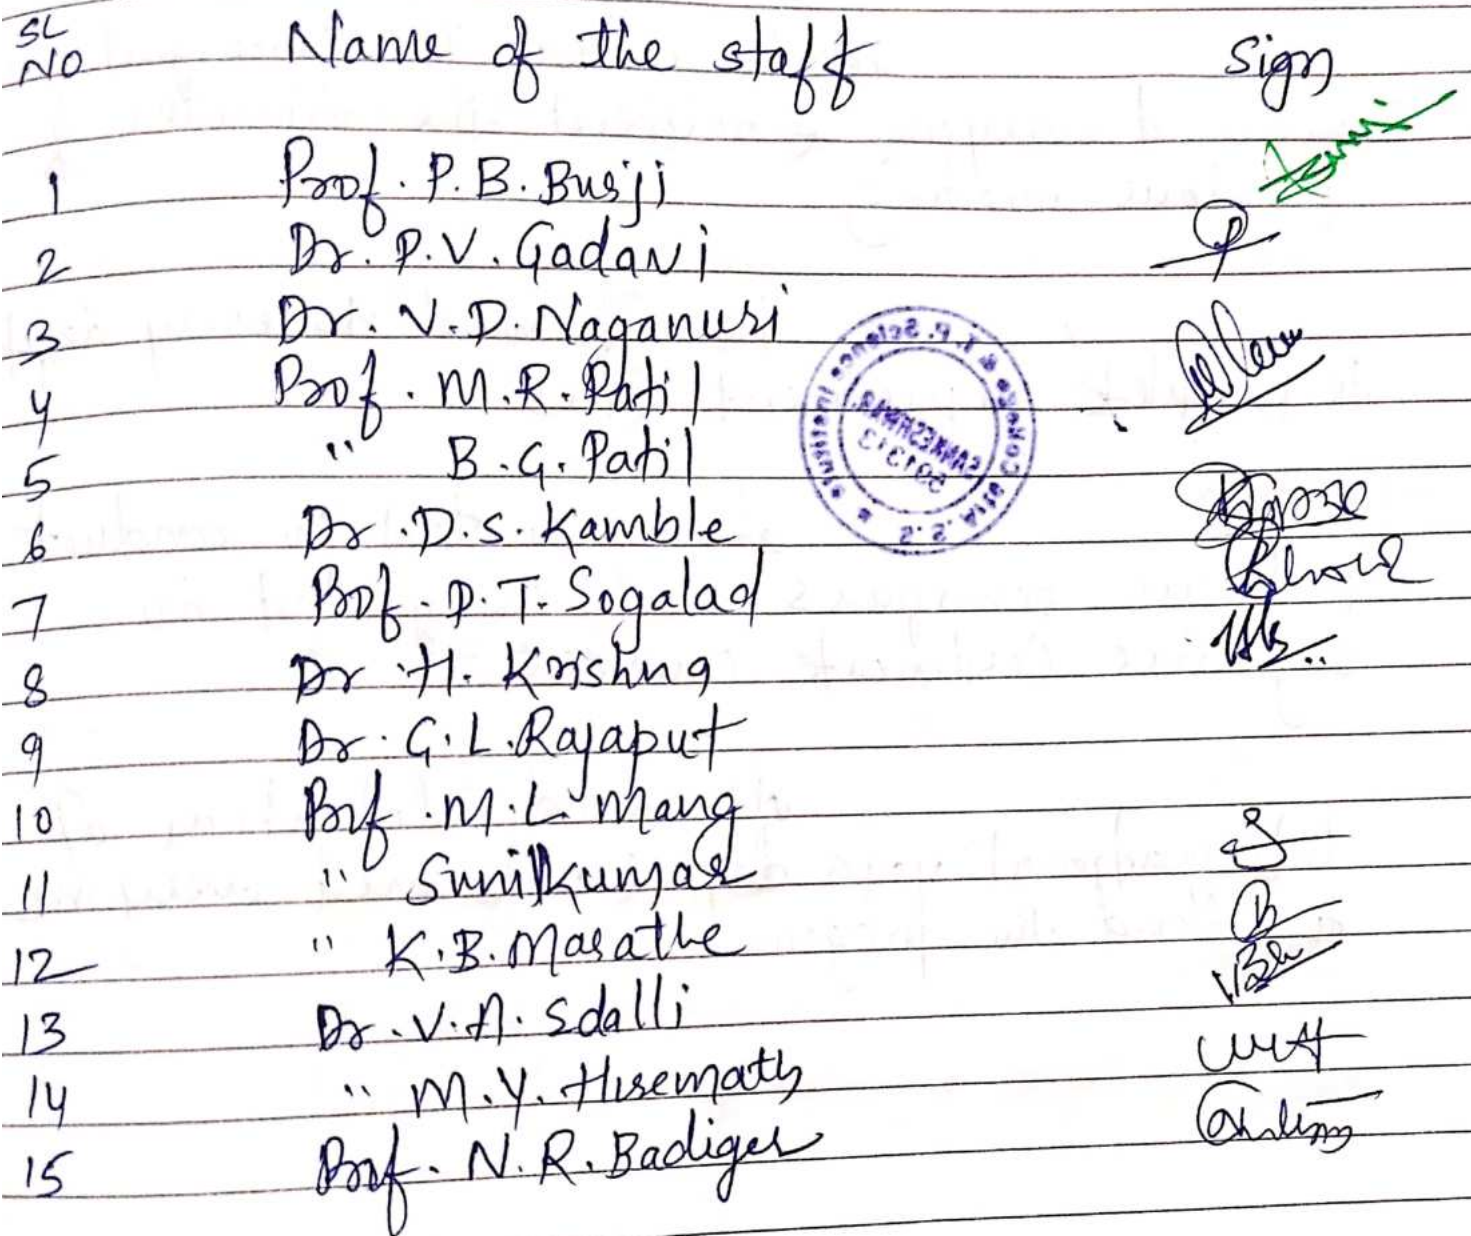 SL NO Name of the staff Sign
1 Prof. P.B. Burji
2 Dr. P.V. Gadavi
3 Dr. V.D. Naganuri
4 Prof. M.R. Patil
5 " B.G. Patil
6 Dr. D.S. Kamble
7 Prof. P.T. Sogalad
8 Dr. H. Krishna
9 Dr. G.L. Rajaput
10 Prof. M.L. Mang
11 " Sunilkumar
12 " K.B. Marathe
13 Dr. V.A. Sdalli
14 " M.Y. Hiremath
15 Prof. N.R. Badiger
S.S. Arts College & T.P. Science Institute
SANKESHWAR
591313